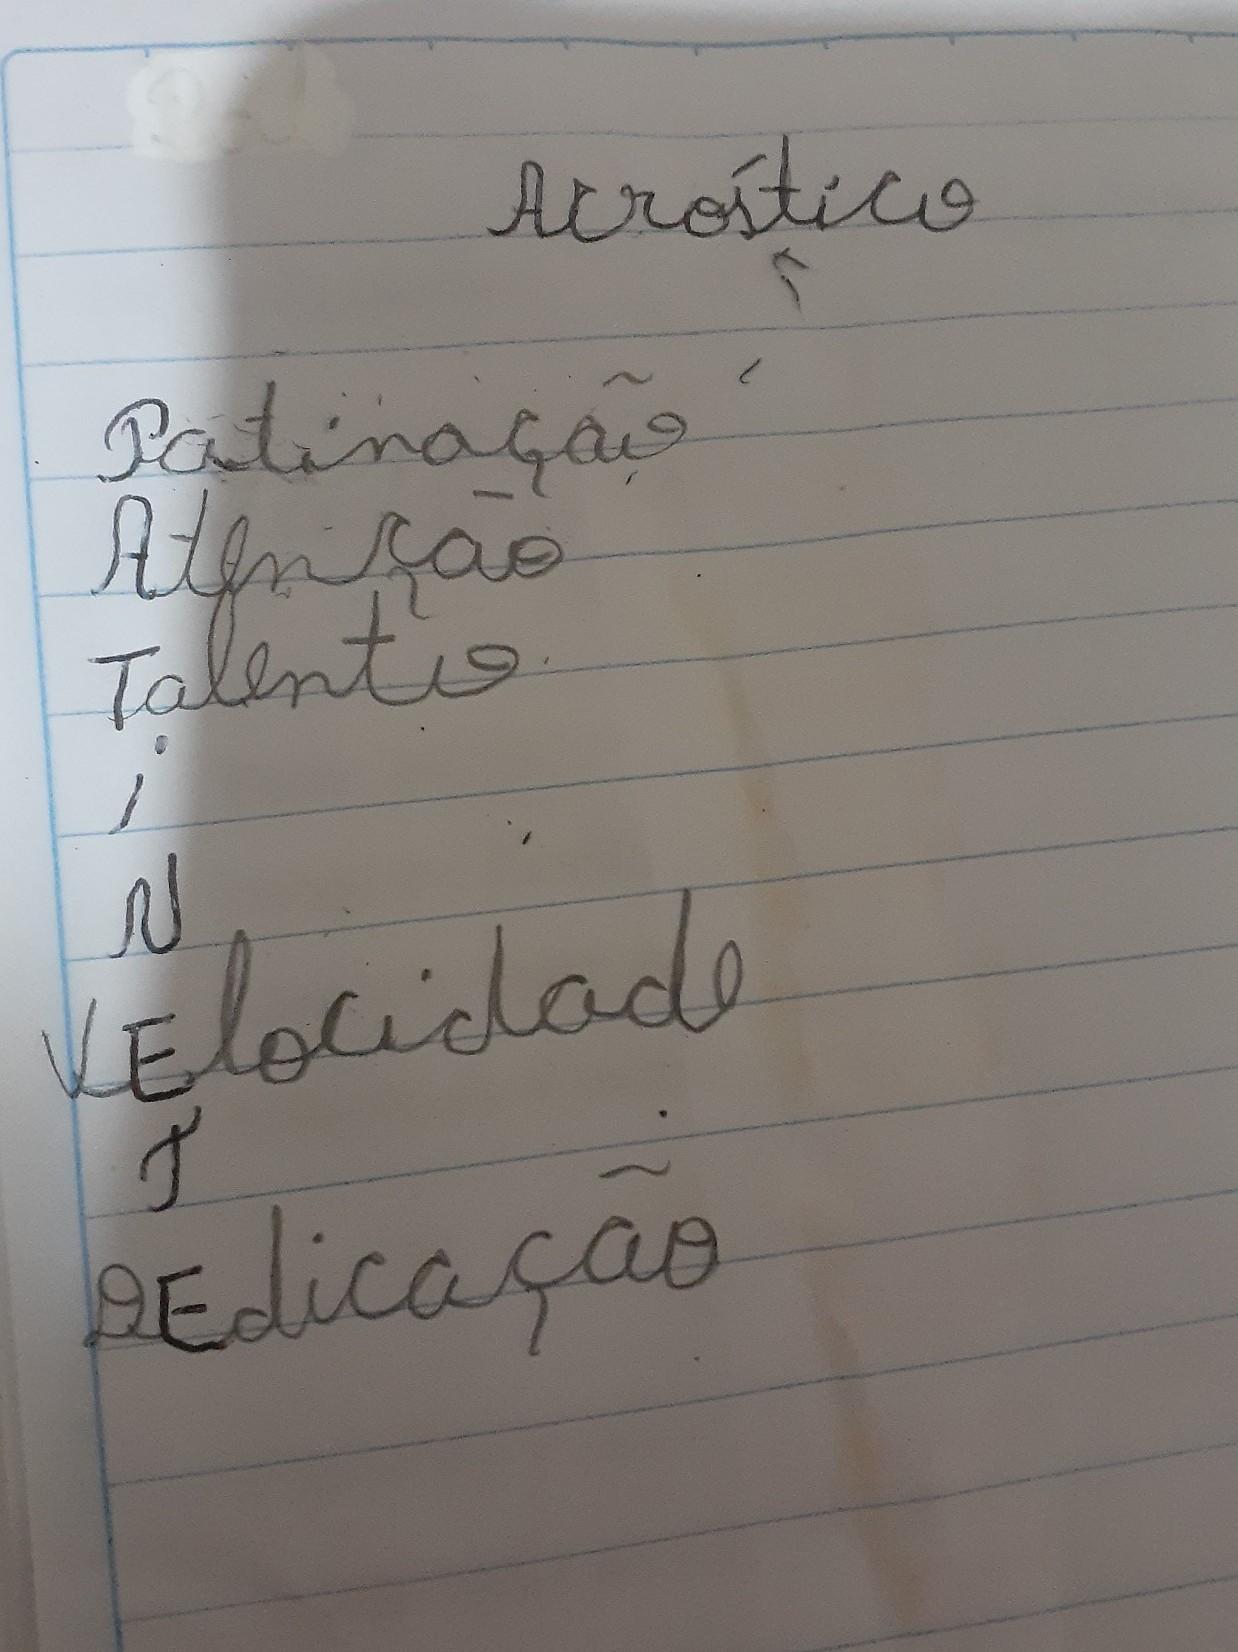 Acróstico
Patinação
Atenção
Talento
i
N
VElocidade
T
DEdicação